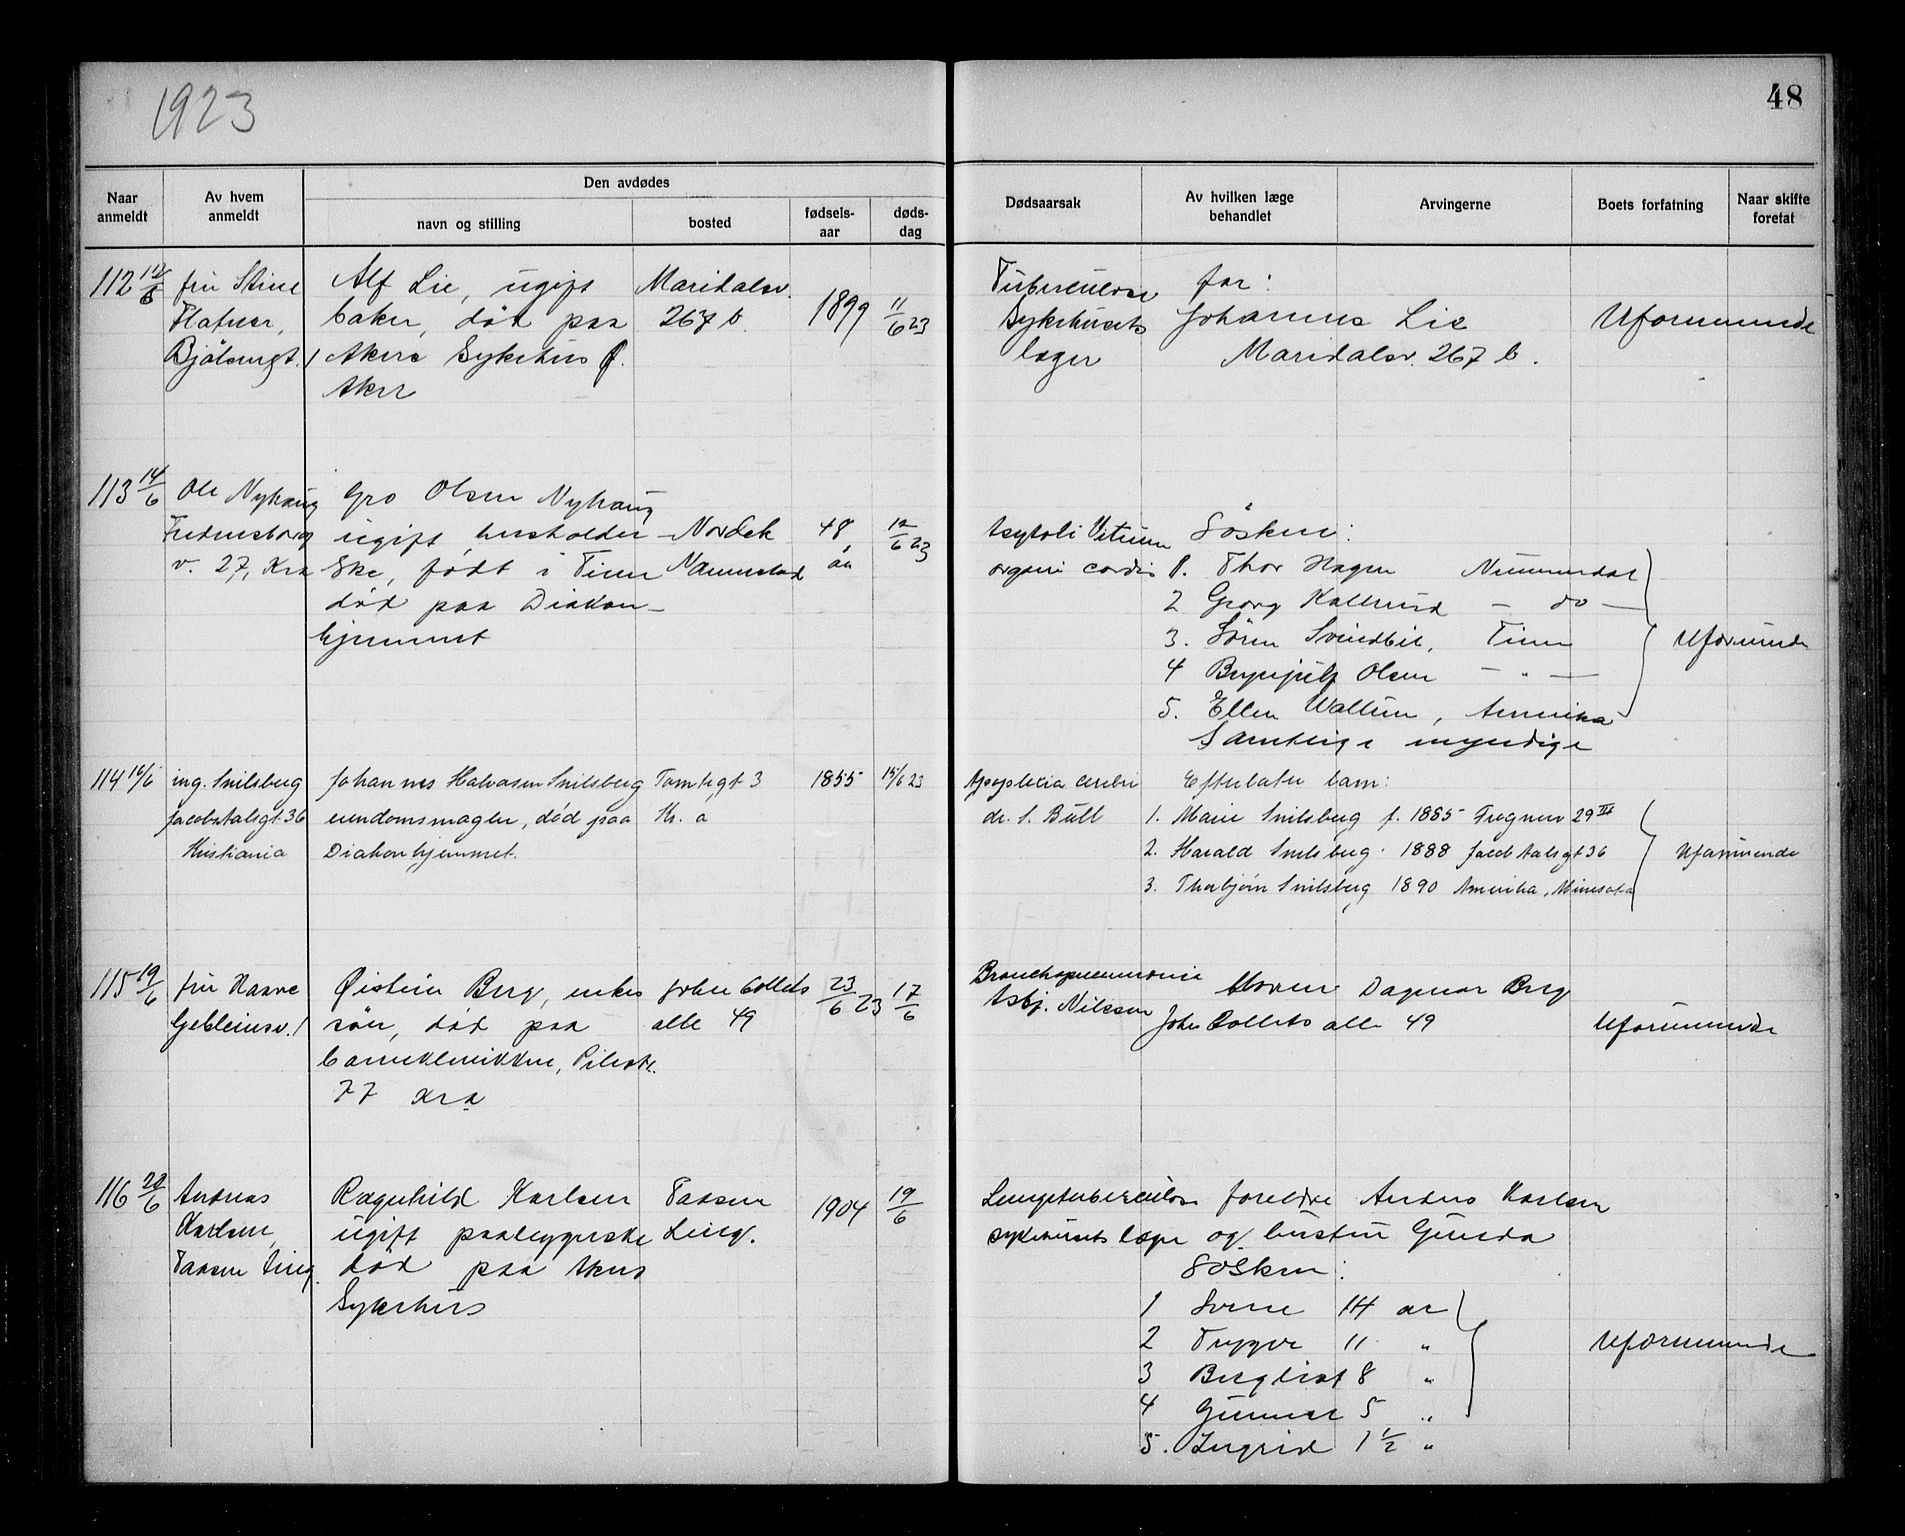 1923
48
Naar anmeldt
Av hvem anmeldt
Den avdødes
navn og stilling
bosted
fødsels-aar
døds-dag
Dødsaarsak
Av hvilken læge behandlet
Arvingerne
Boets forfatning
Naar skifte foretat
112 12/6 fru Stine Alf Lie, ugift Maridalsv. 1899 11/6 23 Tuberculose far:
baker, død paa 267 b. Sykehusets Johannes Lie Uformuende
Bjølsengt. 1 Akers Sykehus Ø. læger Maridalsv. 267 b.
Aker
113 14/6 Ole Nyhaug Gro Olsen Nyhaug
v. 27, Kra ugift, husholder- Nordek 48 12/6 23 Vitium Søsken:
ske, født i Tinn aar organi cordis 1. Thor Hagen Nummedal
død paa Diakon- 2 Georg Kallerud - do -
hjemmet 3. Søren Svindbil, Tinn Uformuende
4 Brynjulf Olsen - " -
5. Ellen Wallum, Amerika
Samtlige myndige
114 16/6 ing. Snilsberg Johannes Halvorsen Snilsberg Tomtegt 3 1855 15/6 23 Apoplexia cerebri Efterlater barn:
Jacob Aalsgt. 36 eiendomsmægler, død paa Kr. a dr. S. Bull 1. Marie Snilsberg f. 1885 Frognerv 29 III
Kristiania Diakonhjemmet. 2. Harald Snilsberg 1888 Jacob Aalsgt 36 Uformuende
3. Thorbjørn Snilsberg 1890 Amerika, Minesota
115 19/6 fru Haave Øistein Berg, enkes John Collets 23/6 23 17/6 Bronchopneumonie Moren Dagmar Berg
søn, død paa alle 49 Asbj. Nilssen John Collets alle 49 Uformuende
barneklinikken, Pilestr.
77 Kra
116 20/6 Andreas Ragnhild Karlsen Taasen 1904 19/6 Lungetuberculose foreldre Anders Karlsen
Karlsen, ugift Ling. sykehusets læge og hustru Gunda
Taasen Ling. død paa Akers Søsken:
Sykehus 1 Sverre 14 aar
2 Trygve 11 " Uformuende
3 Bergliot 8 "
4 Gunnar 5 "
5. Ingrid 1 1/2 "